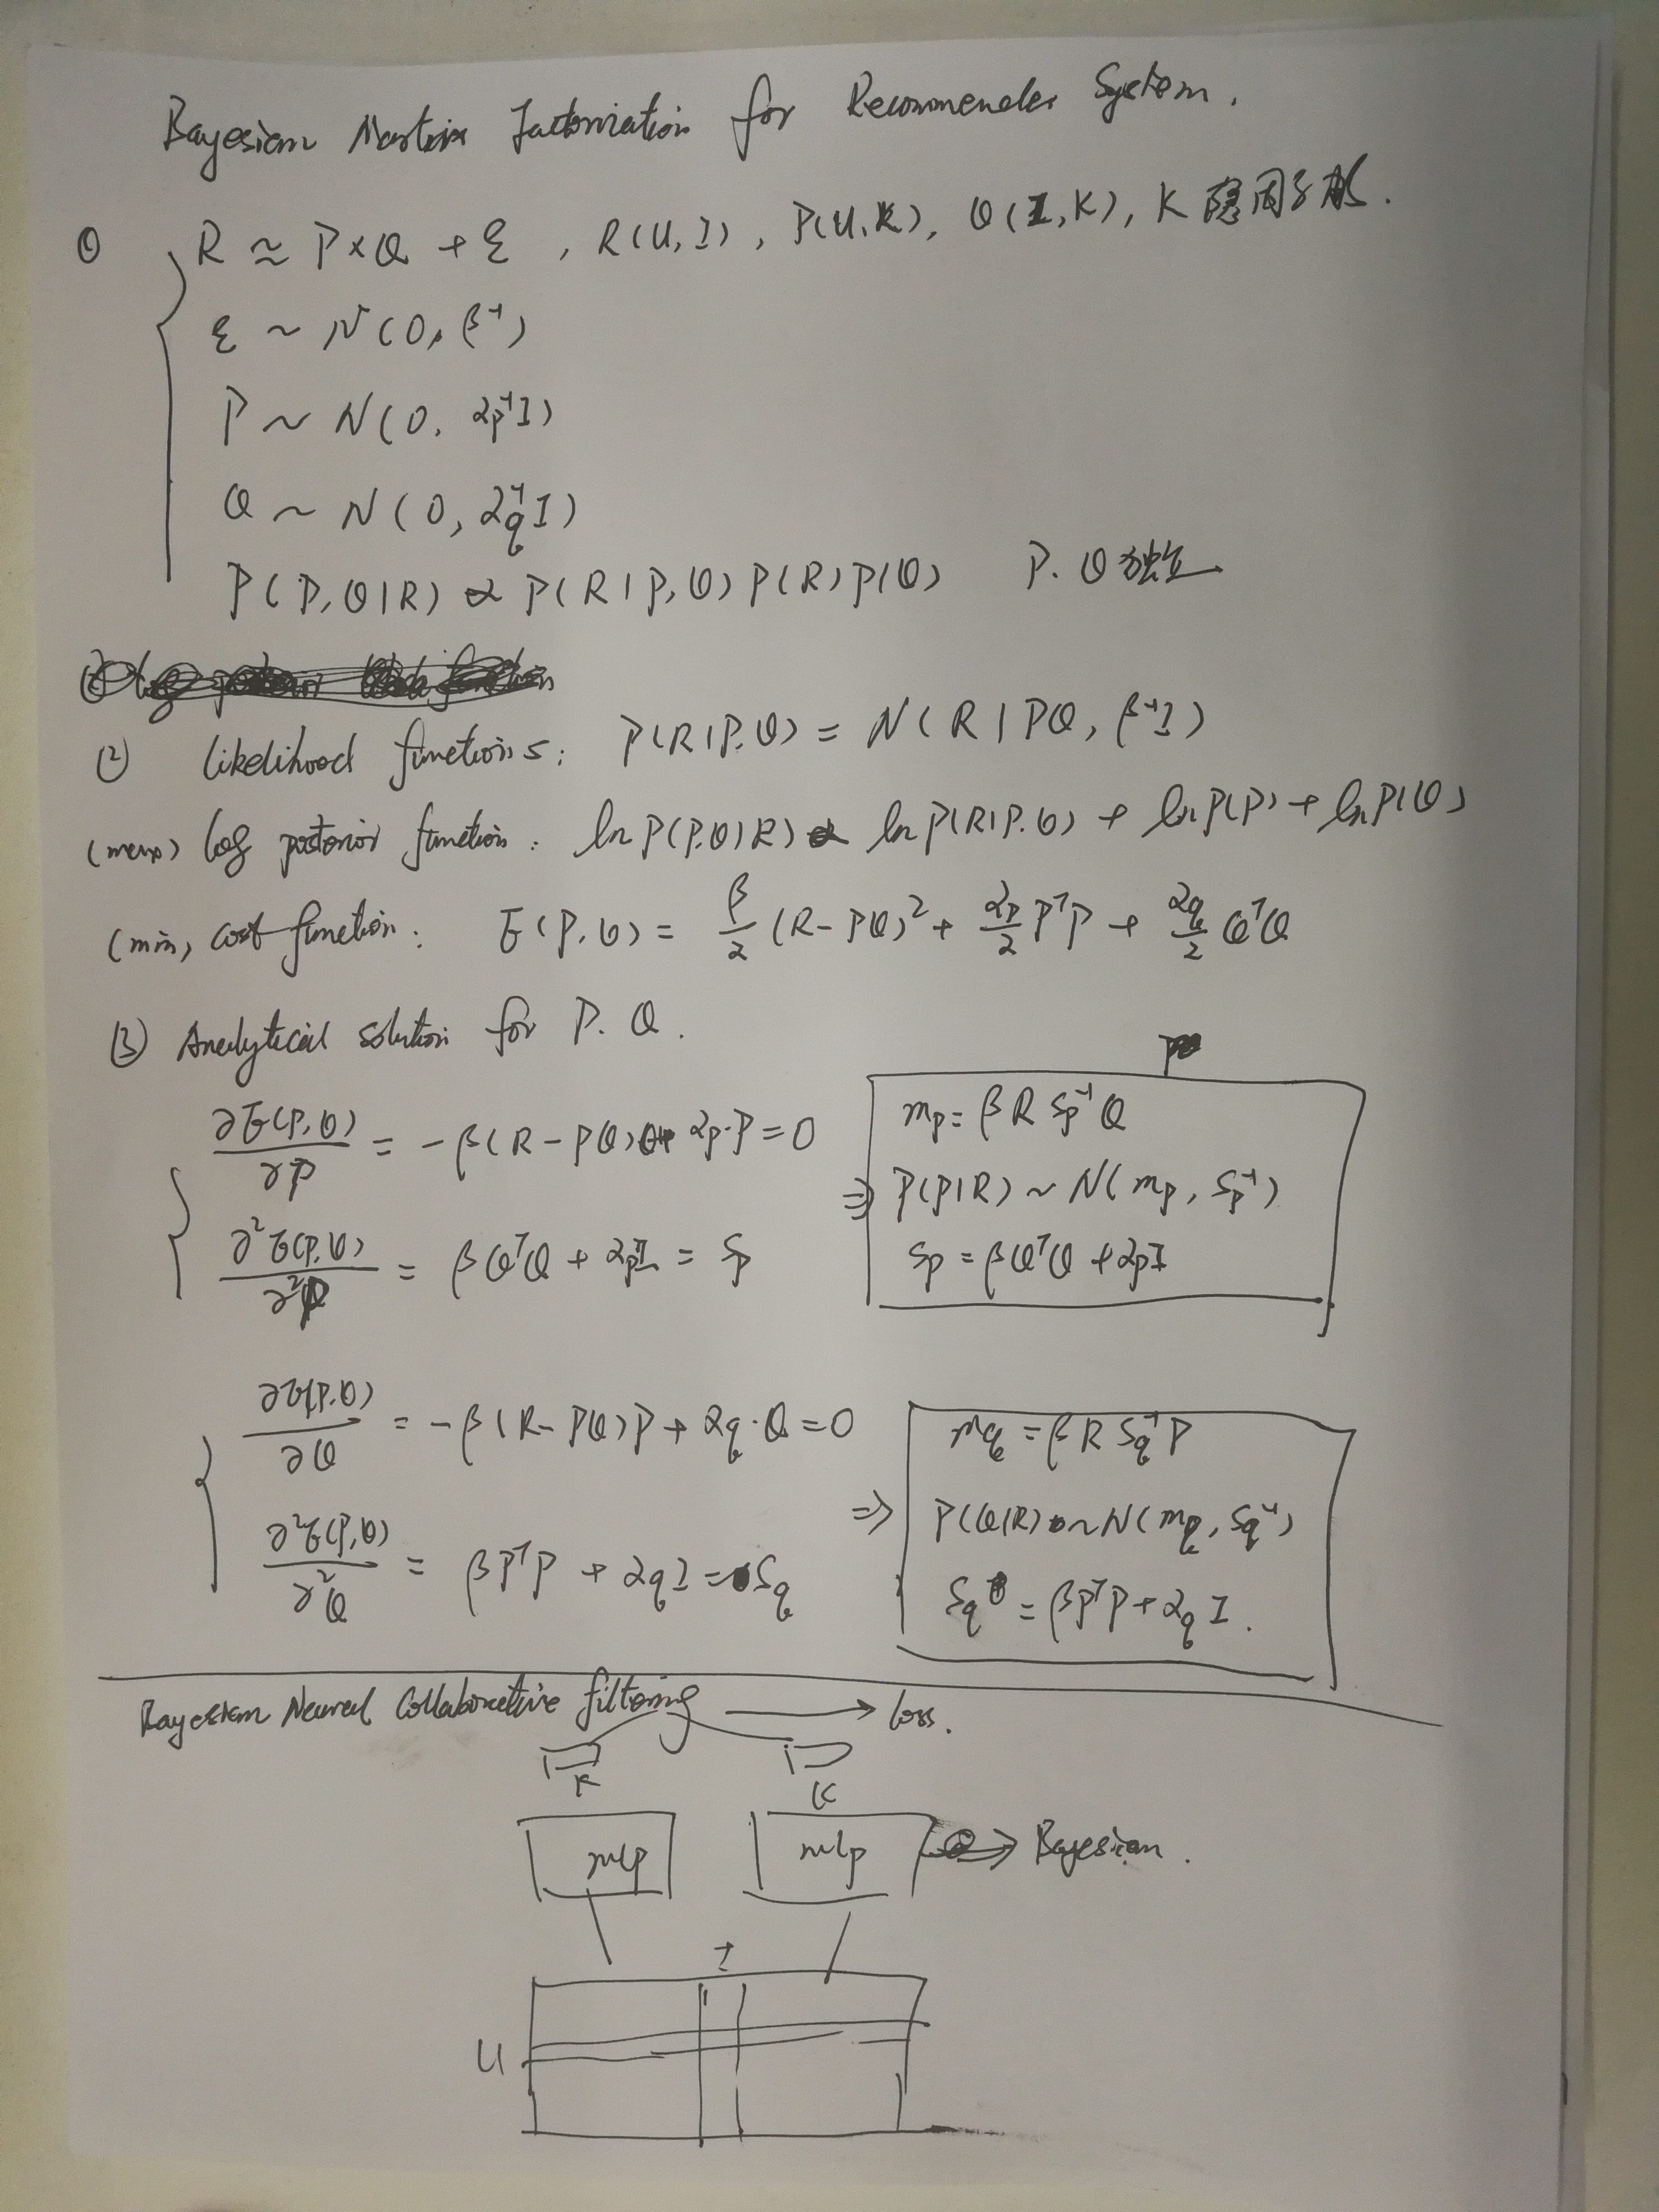 Bayesian Matrix Factorization for Recommender System.
① R ≈ P×Q + ε , R(U, I), P(U, K), Q(I, K), K 隐因子
ε ~ N(0, β⁻¹)
P ~ N(0, αp⁻¹I)
Q ~ N(0, αq⁻¹I)
P(P,Q|R) ∝ P(R|P,Q) P(R) P(Q) P. Q 独立
(2) Likelihood functions: P(R|P.Q) = N(R|PQ, β⁻¹I)
(max) log posterior function: ln P(P.Q|R) ∝ ln P(R|P.Q) + ln P(P) + ln P(Q)
(min) cost function: E(P,Q) = β/2 (R-PQ)² + αp/2 PᵀP + αq/2 QᵀQ
(3) Analytical solution for P. Q.
∂E(P,Q)/∂P = -β(R-PQ)Q + αp·P = 0
∂²E(P,Q)/∂²P = βQᵀQ + αpI = Sp
⇒ mp = βR Sp⁻¹ Q
P(P|R) ~ N(mp, Sp⁻¹)
Sp = βQᵀQ + αpI
∂E(P.Q)/∂Q = -β(R-PQ)P + αq·Q = 0
∂²E(P,Q)/∂²Q = βPᵀP + αqI = Sq
⇒ mq = βR Sq⁻¹ P
P(Q|R) ~ N(mq, Sq⁻¹)
Sq = βPᵀP + αqI.
Bayesian Neural Collaborative filtering → loss.
K K
mlp mlp ⇒ Bayesian.
I
U